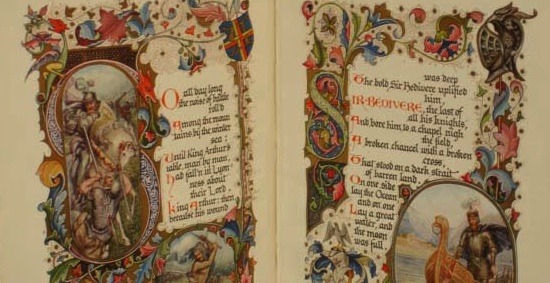 O all day long
the noise of battle
roll'd
Among the moun
tains by the winter
sea:
Until King Arthur's
table, man by man,
had fall'n in Lyon
ness about
their Lord,
King Arthur: then
because his wound
was deep
The bold Sir Bedivere uplifted
him,
SIR BEDIVERE, the last of
all his knights,
And bore him to a chapel nigh
the field,
A broken chancel with a broken
cross,
That stood on a dark strait
of barren land.
On one side
lay the Ocean
and on one
Lay a great
water, and
the moon
was full.